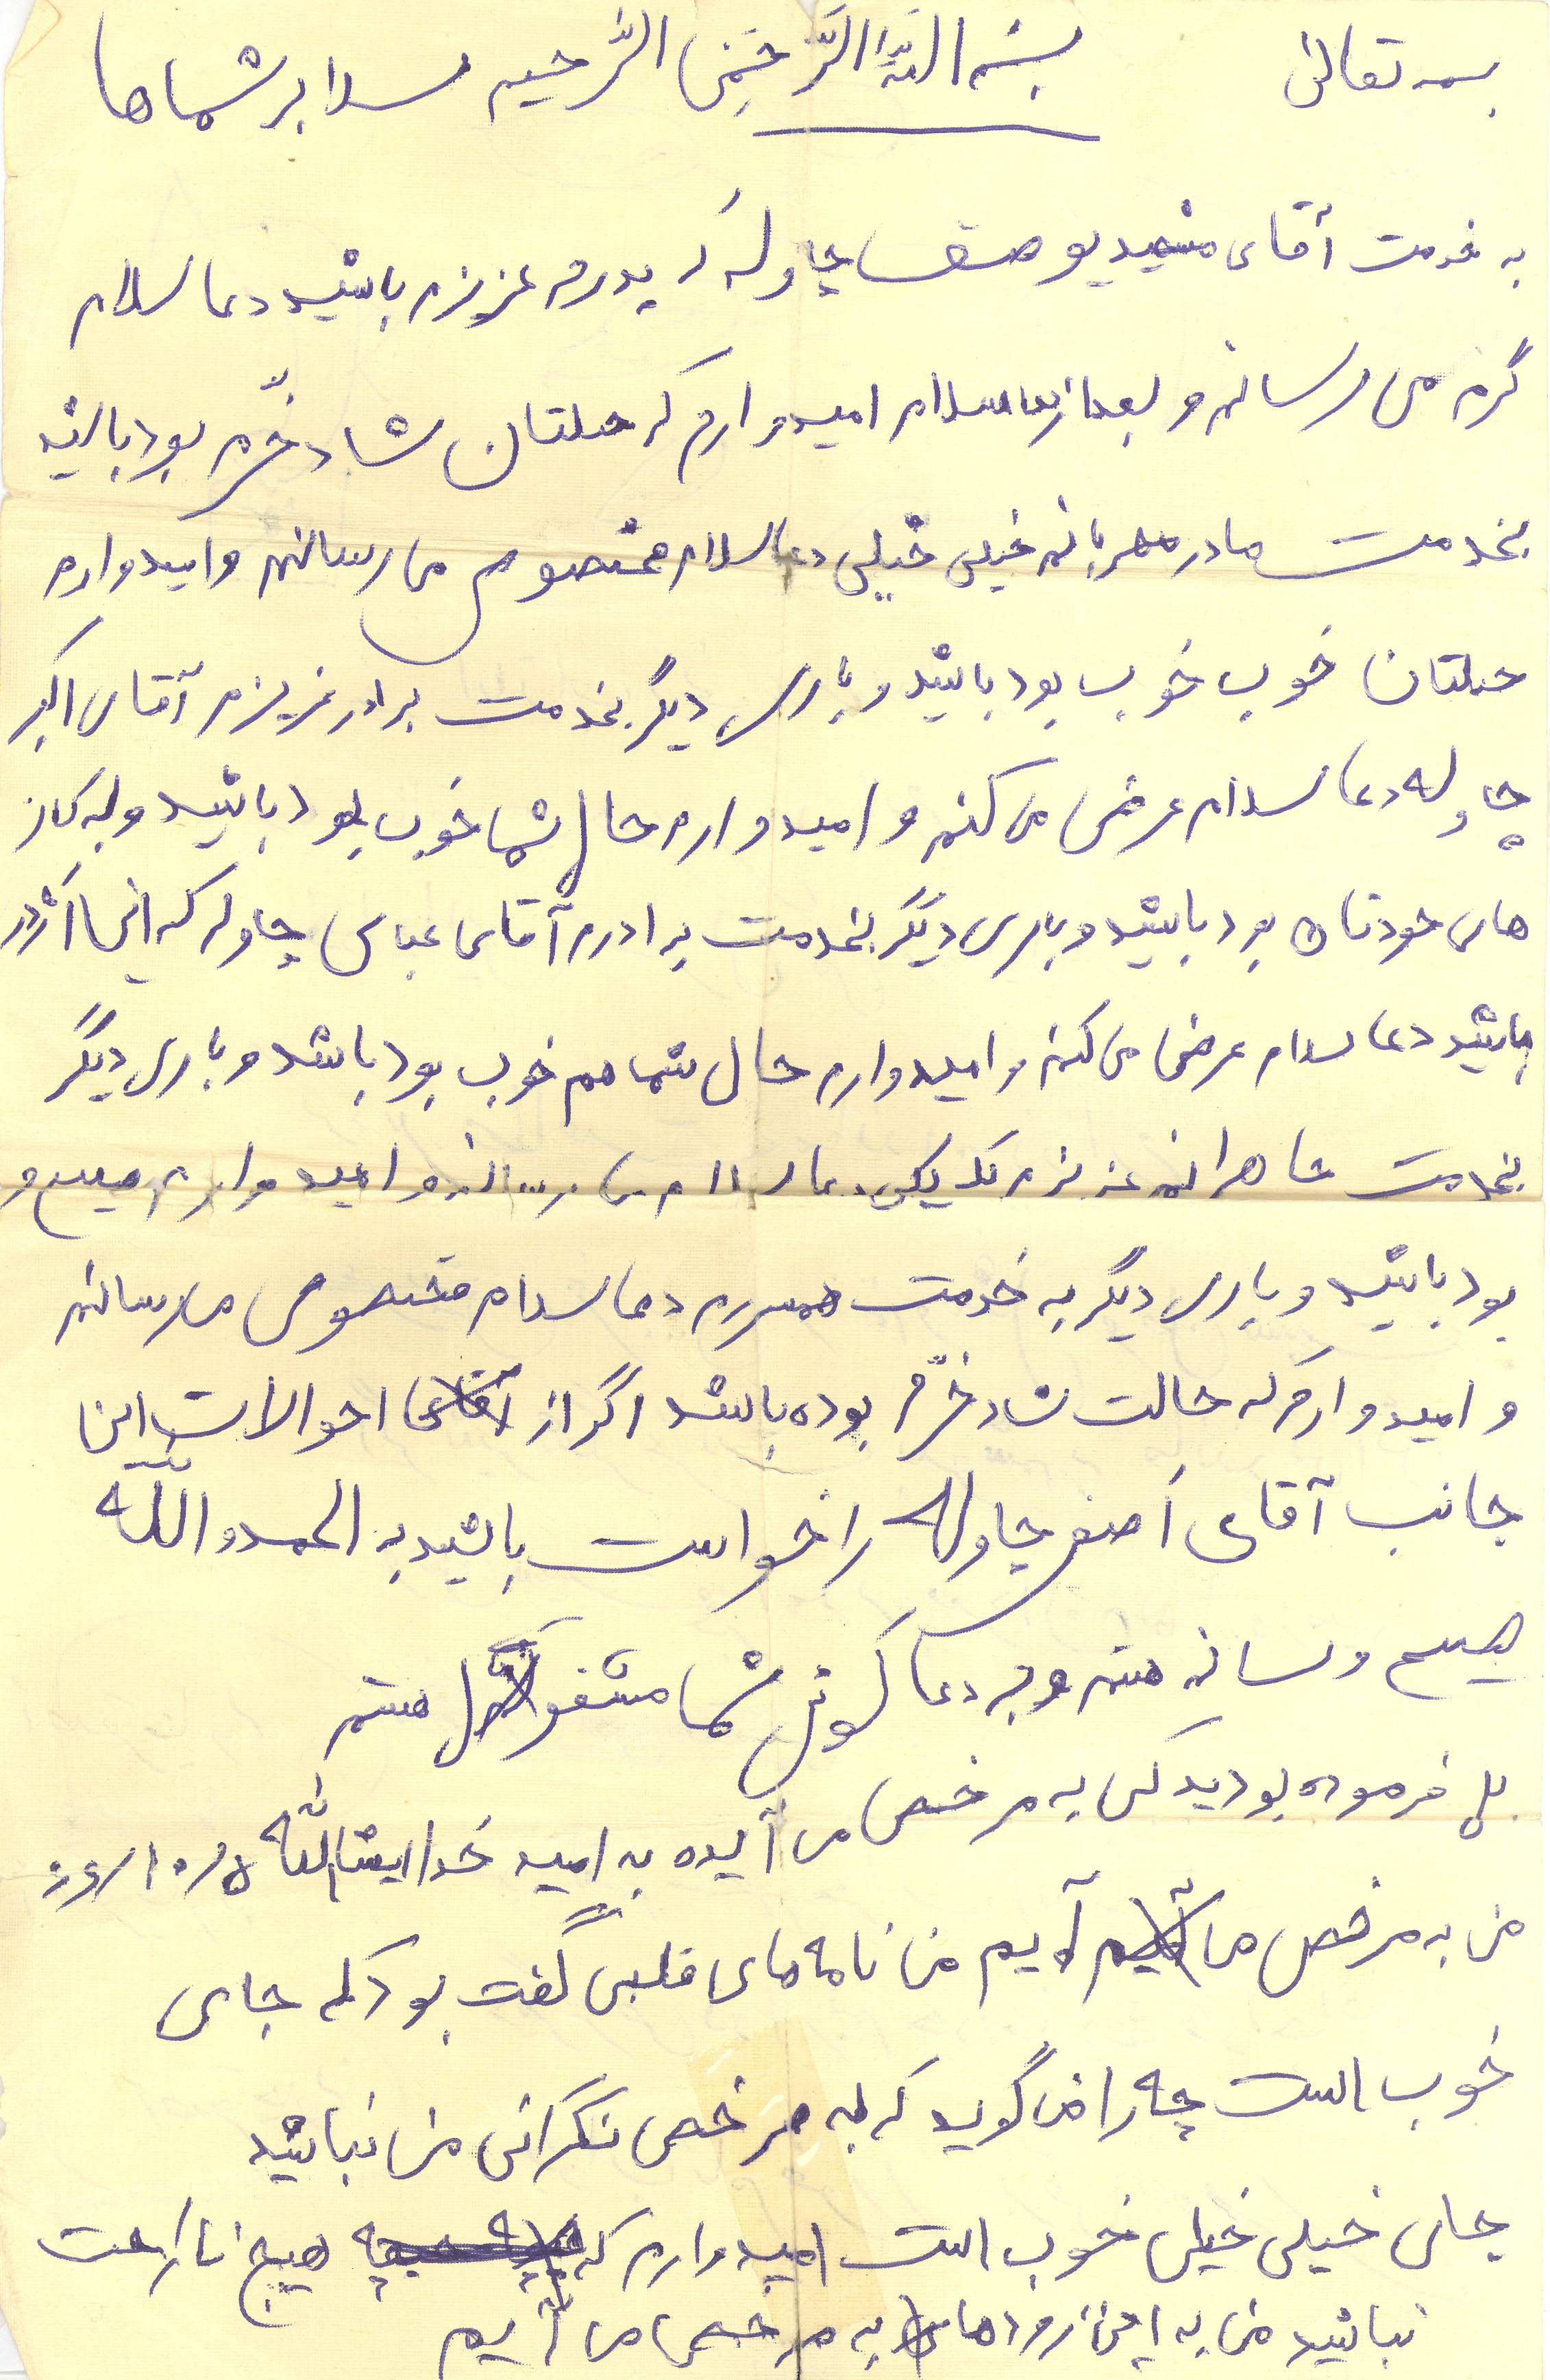 بسمه تعالی بِسْمِ اللَّهِ الرَّحْمَنِ الرَّحیم سلام بر شماها
به خدمت آقای مشهدی یوصف چاوله که پدرم عزیزم باشید دعا سلام
گرم می رسانم و بعد از دعا سلام امیدوارم که حالتان شاد خرّم بود باشید
بخدمت مادر مهربانم خیلی خیلی دعا سلام مخصوص می رسانم و امیدوارم
حالتان خوب خوب بود باشید و باری دیگر بخدمت برادر عزیزم آقای اکبر
چاوله دعا سلام عرض می کنم و امیدوارم حال شما خوب بود باشید و به کار
های خودتان بود باشید و باری دیگر بخدمت برادرم آقای عباس چاوله که
باشید دعا سلام عرض می کنم و امیدوارم حال شما هم خوب بود باشد و باری دیگر
بخدمت خاهرانم عزیزم تک یکی دعا سلام می رسانم و امیدوارم صیح و
بود باشید و باری دیگر به خدمت همسرم دعا سلام مخصوص می رسانم
و امیدوارم که حالت شاد خرّم بوده باشد اگر از احوالات این
جانب آقای اصغر چاوله را خواست باشید به الحمدو اللّه
صیح و سالم هستم و به دعا گوئی شما مشغول هستم
بله فرموده بودید کی به مرخصی می آیده به امید خدا ایشااللّه ۱۰/۵ روز
من به مرخصی می آیم من نامه های قلبی گفت بود که جای
خوب است چه را می گوید که به مرخصی نگرانی من نباشید
جای خیلی خیلی خوب است امیدوارم که هیچ ناراحت
نباشید من به این زودها به مرخصی می آیم